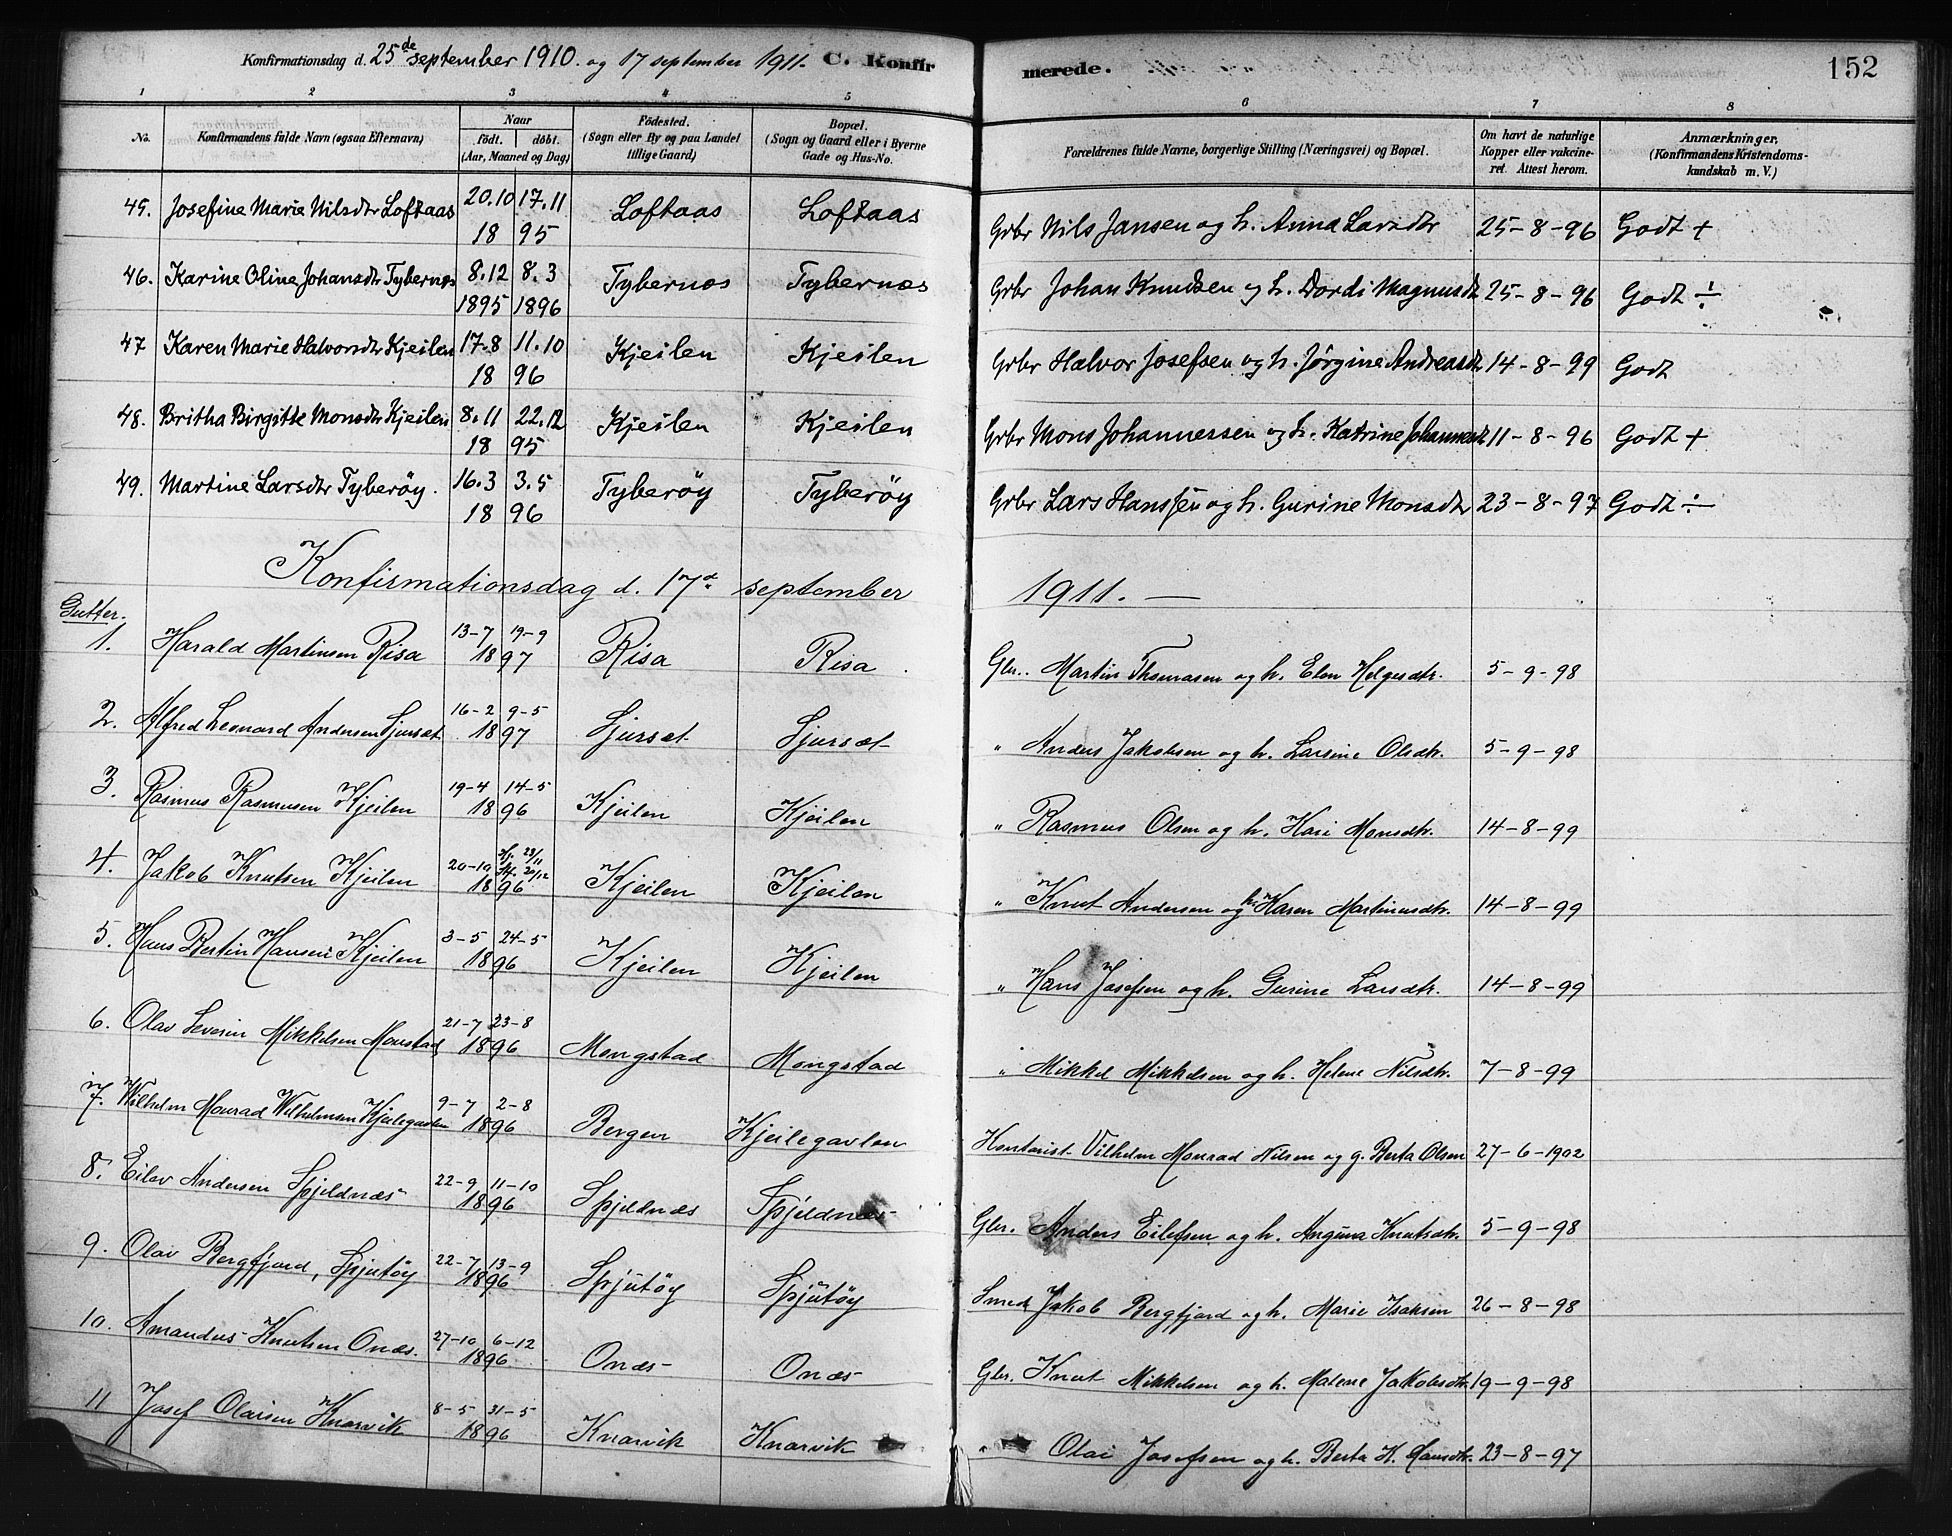 Konfirmationsdag d. 25de september 1910. og 17 september 1911. C. Konfirmerede. 152
1 2 3 4 5 6 7 8
No. Konfirmandens fulde Navn (ogsaa Efternavn) Naar födt. döbt. (Aar, Maaned og Dag) Födested. (Sogn eller By og paa Landet tillige Gaard) Bopæl. (Sogn og Gaard eller i Byerne Gade og Hus-No. Forældrenes fulde Navne, borgerlige Stilling (Næringsvei) og Bopæl. Om havt de naturlige Kopper eller vakcineret. Attest herom. Anmærkninger, (Konfirmandens Kristendomskundskab m. V.)
45. Josefine Marie Nilsdtr Loftaas 20.10 17.11 1895 Loftaas Loftaas Grbr Nils Jansen og h. Anna Larsdtr 25-8-96 Godt +
46. Karine Oline Johansdtr Tybernæs 8.12 1895 8.3 1896 Tybernæs Tybernæs Grbr Johan Knudsen og h. Dordi Magnusdt 25-8-96 Godt ÷
47 Karen Marie Halvorsdtr Kjeilen 17.8 11.10 1896 Kjeilen Kjeilen Grbr Halvor Josefsen og h. Jörgine Andreasdt 14-8-99 Godt
48. Britha Birgitte Monsdtr Kjeilen 8.11 22.12 1895 Kjeilen Kjeilen Grbr Mons Johannessen og h. Katrine Johannesdt 11-8-96 Godt +
49. Martine Larsdtr Tyberöy. 16.3 3.5 1896 Tyberöy Tyberöy Grbr Lars Hanssen og h. Gurine Monsdtr 23-8-97 Godt ÷
Konfirmationsdag d. 17d september 1911. —
Gutter.
1. Harald Martinsen Risa 13-7 19-9 1897 Risa Risa Gbr. Martin Thomasen og h. Elen Helgesdtr. 5-9-98
2. Alfred Leonard Andersen Sjursæt 16-2 9-5 1897 Sjursæt Sjursæt " Anders Jakobsen og h. Larsine Olsdtr. 5-9-98
3. Rasmus Rasmusen Kjeilen 19-4 14-5 1896 Kjeilen Kjeilen " Rasmus Olsen og h. Kari Monsdtr. 14-8-99
4. Jakob Knutsen Kjeilen 20-10 Hj. 23/11 Kf. 20/12 1896 Kjeilen Kjeilen " Knut Andersen og h. Karen Martinusdtr. 14-8-99
5. Hans Bertin Hansen Kjeilen 3-5 24-5 1896 Kjeilen Kjeilen " Hans Josefsen og h. Gurine Larsdtr. 14-8-99
6. Olav Severin Mikkelsen Monstad 21-7 23-8 1896 Mongstad Mongstad " Mikkel Mikkelsen og h. Helene Nilsdtr. 7-8-99
7. Wilhelm Monrad Wilhelmsen Kjeilegavlen 9-7 2-8 1896 Bergen Kjeilegavlen Kontorist Vilhelm Monrad Nilsen og g. Berta Olsen 27-6-1902
8. Eilev Andersen Spjeldnæs 22-9 11-10 1896 Spjeldnæs Spjeldnæs Gbr. Anders Eilefsen og h. Anguna Knutsdtr. 5-9-98
9. Olav Bergfjord, Spjutöy 22-7 13-9 1896 Spjutöy Spjutöy Smed Jakob Bergfjord og h. Marie Isaksen 26-8-98
10. Amandus Knutsen Onæs. 27-10 6-12 1896 Onæs Onæs Gbr. Knut Mikkelsen og h. Malene Jakobsdtr. 19-9-98
11 Josef Olaisen Knarvik 8-5 31-5 1896 Knarvik Knarvik " Olai Josefsen og h. Berta K. Hansdtr. 23-8-97